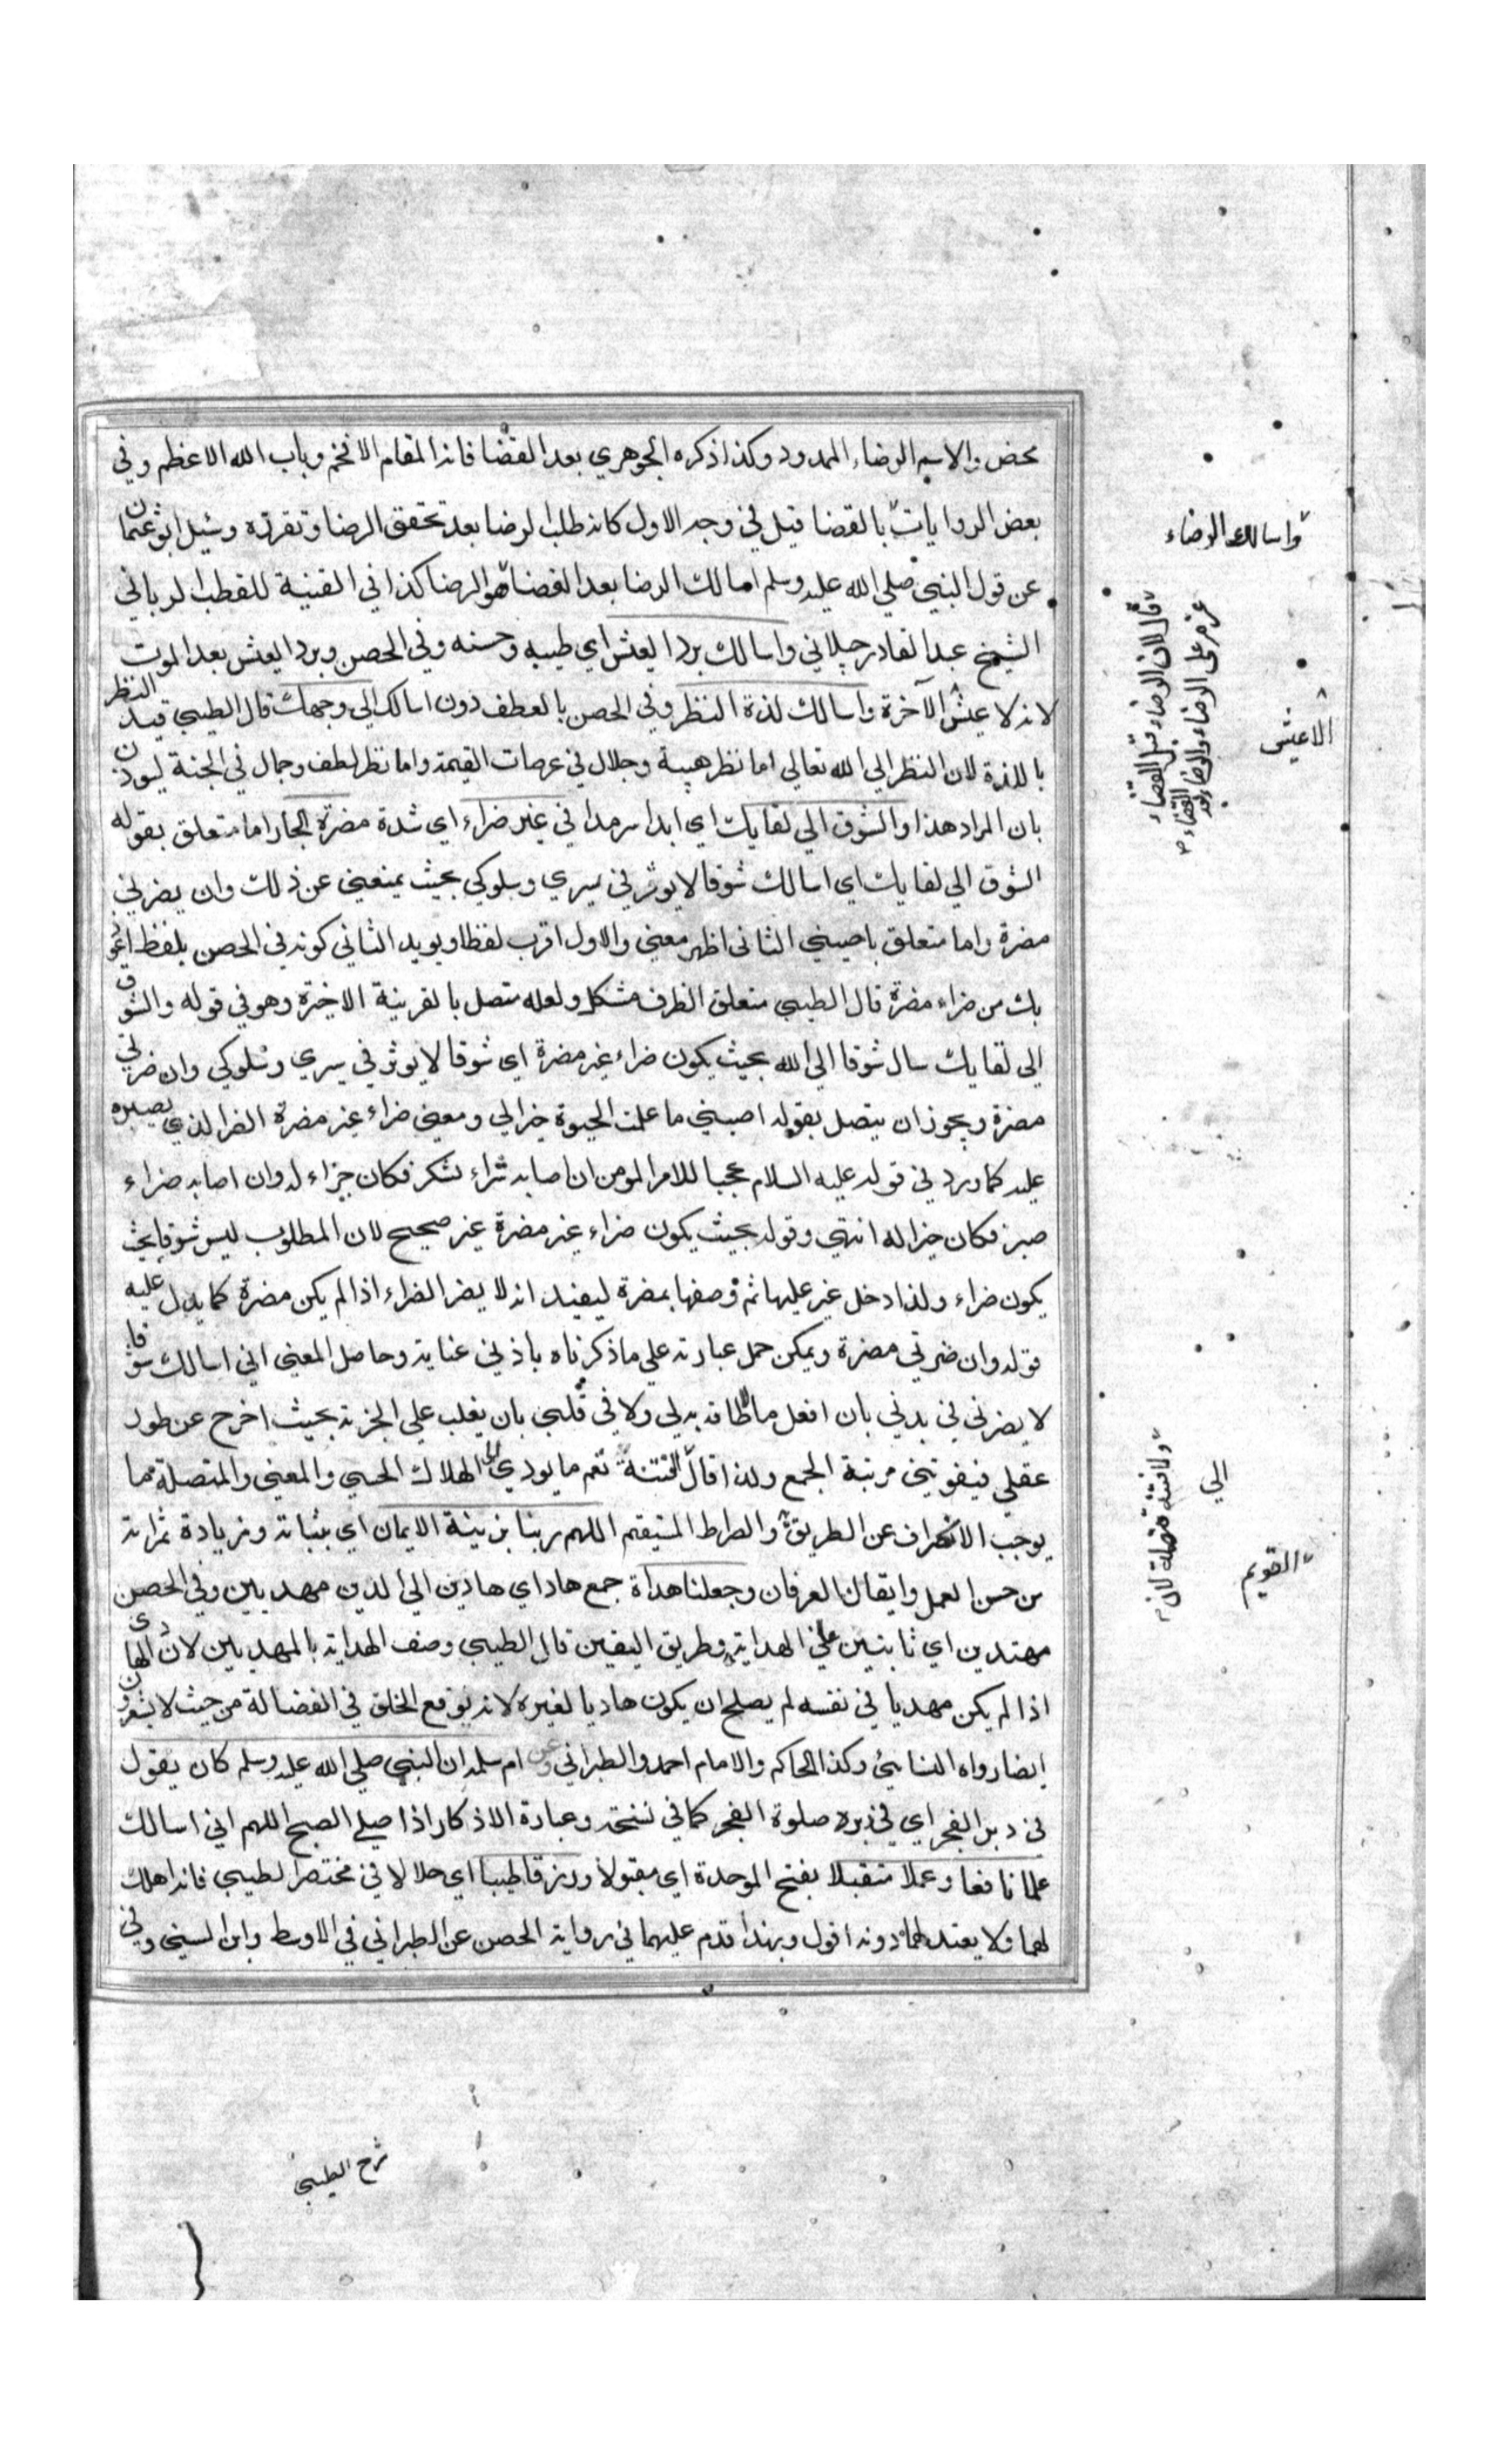 محض والاسم الرضاء الممدود وكذا ذكره الجوهري بعد القضا فانه المقام الافخم وباب الله الاعظم وفي
بعض الروايات بالقضا قيل في وجه الاول كانه طلب الرضا بعد تحقق الرضا وتقرره وسئل ابو عثمان
عن قول النبي صلي الله عليه وسلم اسالك الرضا بعد القضا هو الرضا كذا في الغنية للقطب الرباني
الشيخ عبد القادر جيلاني واسالك برد العيش اي طيبه وحسنه وفي الحصن وبرد العيش بعد الموت
لانه لا عيش الآخرة واسالك لذة النظر وفي الحصن بالعطف دون اسالك الي وجهك قال الطيبي قيد النظر
باللذة لان النظر الي الله تعالي اما نظر هيبة وجلال في عرصات القيمة واما نظر لطف وجمال في الجنة ليوذن
بان المراد هذا والشوق الي لقايك اي ابدا سرمدا في غير ضراء اي شدة مضرة الجار اما متعلق بقوله
الشوق الي لقايك اي اسالك شوقا لا يوثر في سري وسلوكي بحيث يمنعني عن ذلك وان يضرني
مضرة واما متعلق باحيني الثاني اظهر معني والاول اقرب لفظا ويويد الثاني كونه في الحصن بلفظ اعوذ
بك من ضراء مضرة قال الطيبي متعلق الظرف مشكل ولعله متصل بالقرينة الاخيرة وهو في قوله والشوق
الي لقايك سال شوقا الي الله بحيث يكون ضراء غير مضرة اي شوقا لا يوثر في سيري وسلوكي وان ضرني
مضرة ويجوز ان يتصل بقوله احيني ما علمت الحيوة خيرا لي ومعني ضراء غير مضرة الضر الذي يصبره
عليه كما ورد في قوله عليه السلام عجبا للامر المومن ان اصابه سراء شكر فكان خيرا له وان اصابه ضراء
صبر فكان خيرا له انتهي وقوله بحيث يكون ضراء غير مضرة غير صحيح لان المطلوب ليس شوقا بحيث
يكون ضراء ولذا دخل غير عليها ثم وصفها بمضرة ليفيد انه لا يضر الضراء اذا لم يكن مضرة كما يدل عليه
قوله وان ضرتي مضرة ويمكن حمل عبارته علي ما ذكرناه باذني عناية وحاصل المعني اني اسالك شوقا
لا يضرني في بدني بان افعل ما لا طاقة به لي ولا في قلبي بان يغلب علي الجزبة بحيث اخرج عن طور
عقلي فيفوتني مرتبة الجمع ولذا قال الفتنة تعم ما يودي الهلاك الحسي والمعني والمتصلة مما
يوجب الانحراف عن الطريق والصراط المستيقم اللهم زينا بزينة الايمان اي بثباته وزيادة ثمراته
من حسن العمل وايقان العرفان وجعلنا هداة جمع هاد اي هادين الي الدين مهديين وفي الحصن
مهتدين اي ثابتين علي الهداية وطريق اليقين قال الطيبي وصف الهداية بالمهديين لان الهادي
اذا لم يكن مهديا في نفسه لم يصلح ان يكون هاديا لغيره لانه يوقع الخلق في الضلالة من حيث لا يشعرون
ايضا رواه النسائي وكذا الحاكم والامام احمد والطبراني وعن ام سلمه ان النبي صلي الله عليه وسلم كان يقول
في دبر الفجر اي في دبره صلوة الفجر كما في نسخة وعبارة الاذكار اذا صلي الصبح اللهم اني اسالك
علما نافعا وعملا متقبلا بفتح الموحدة اي مقبولا ورزقا طيبا اي حلالا في مختصر الطيبي فانه اهلك
لهما ولا يعتد لهما دونه اقول وبهذا قدم عليهما في رواية الحصن عن الطبراني في الاوسط وابن السني وفي
واسالك الرضاء
قال لان الرضاء قبل القضاء
عزم علي الرضاء والرضاء بعد
القضاء
الا عيش
الي
ولا فتنة مضلة لان
القويم
شرح الطيبي